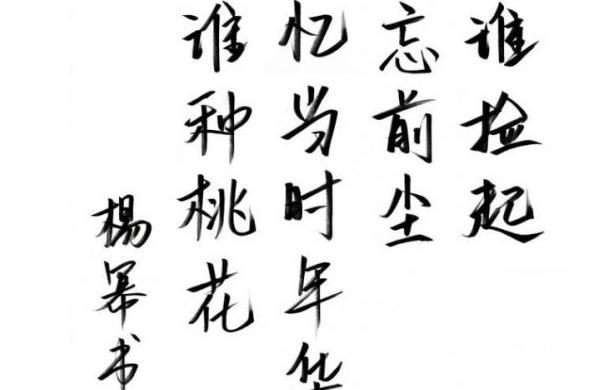 谁捡起
忘前尘
忆当时年华
谁种桃花
楊幂书